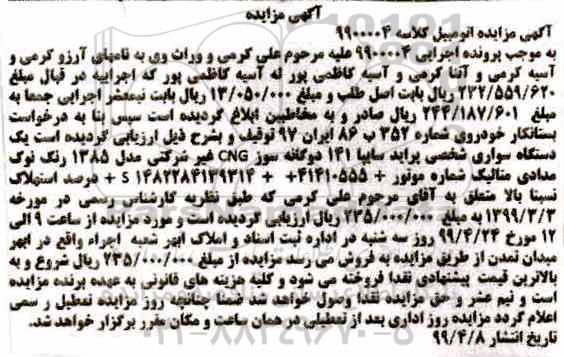 آگهی مزایده
آگهی مزایده اتومبیل کلاسه ۹۹۰۰۰۰۴
به موجب پرونده اجرایی ۹۹۰۰۰۰۴ علیه مرحوم علی کرمی و وراث وی به نامهای آرزو کرمی و
آسیه کرمی و آتنا کرمی و آسیه کاظمی پور له آسیه کاظمی پور که اجراییه در قبال مبلغ
۲۳۲/۵۵۹/۶۲۰ ریال بابت اصل طلب و مبلغ ۱۳/۰۵۰/۰۰۰ ریال بابت نیمعشر اجرایی جمعا به
مبلغ ۲۴۴/۱۸۷/۶۰۱ ریال صادر و به مخاطبین ابلاغ گردیده است سپس بنا به درخواست
بستانکار خودروی شماره ۳۵۲ ب ۸۶ ایران ۹۷ توقیف و بشرح ذیل ارزیابی گردیده است یک
دستگاه سواری شخصی پراید سایپا ۱۴۱ دوگانه سوز CNG غیر شرکتی مدل ۱۳۸۵ رنگ نوک
مدادی متالیک شماره موتور + ۴۱۴۱۰۵۵۵+ + S ۱۴۸۲۲۸۴۱۳۹۳۱۴ + درصد استهلاک
نسبتا بالا متعلق به آقای مرحوم علی کرمی که طبق نظریه کارشناس رسمی در مورخه
۱۳۹۹/۳/۳ به مبلغ ۲۳۵/۰۰۰/۰۰۰ ریال ارزیابی گردیده است و مورد مزایده از ساعت ۹ الی
۱۲ مورخ ۹۹/۴/۲۴ روز سه شنبه در اداره ثبت اسناد و املاک ابهر شعبه اجراء واقع در ابهر
میدان تمدن از طریق مزایده به فروش می رسد مزایده از مبلغ ۲۳۵/۰۰۰/۰۰۰ ریال شروع و به
بالاترین قیمت پیشنهادی نقدا فروخته می شود و کلیه هزینه های قانونی به عهده برنده مزایده
است و نیم عشر و حق مزایده نقدا وصول خواهد شد ضمنا چنانچه روز مزایده تعطیل رسمی
اعلام گردد مزایده روز اداری بعد از تعطیلی در همان ساعت و مکان مقرر برگزار خواهد شد.
تاریخ انتشار ۹۹/۴/۸